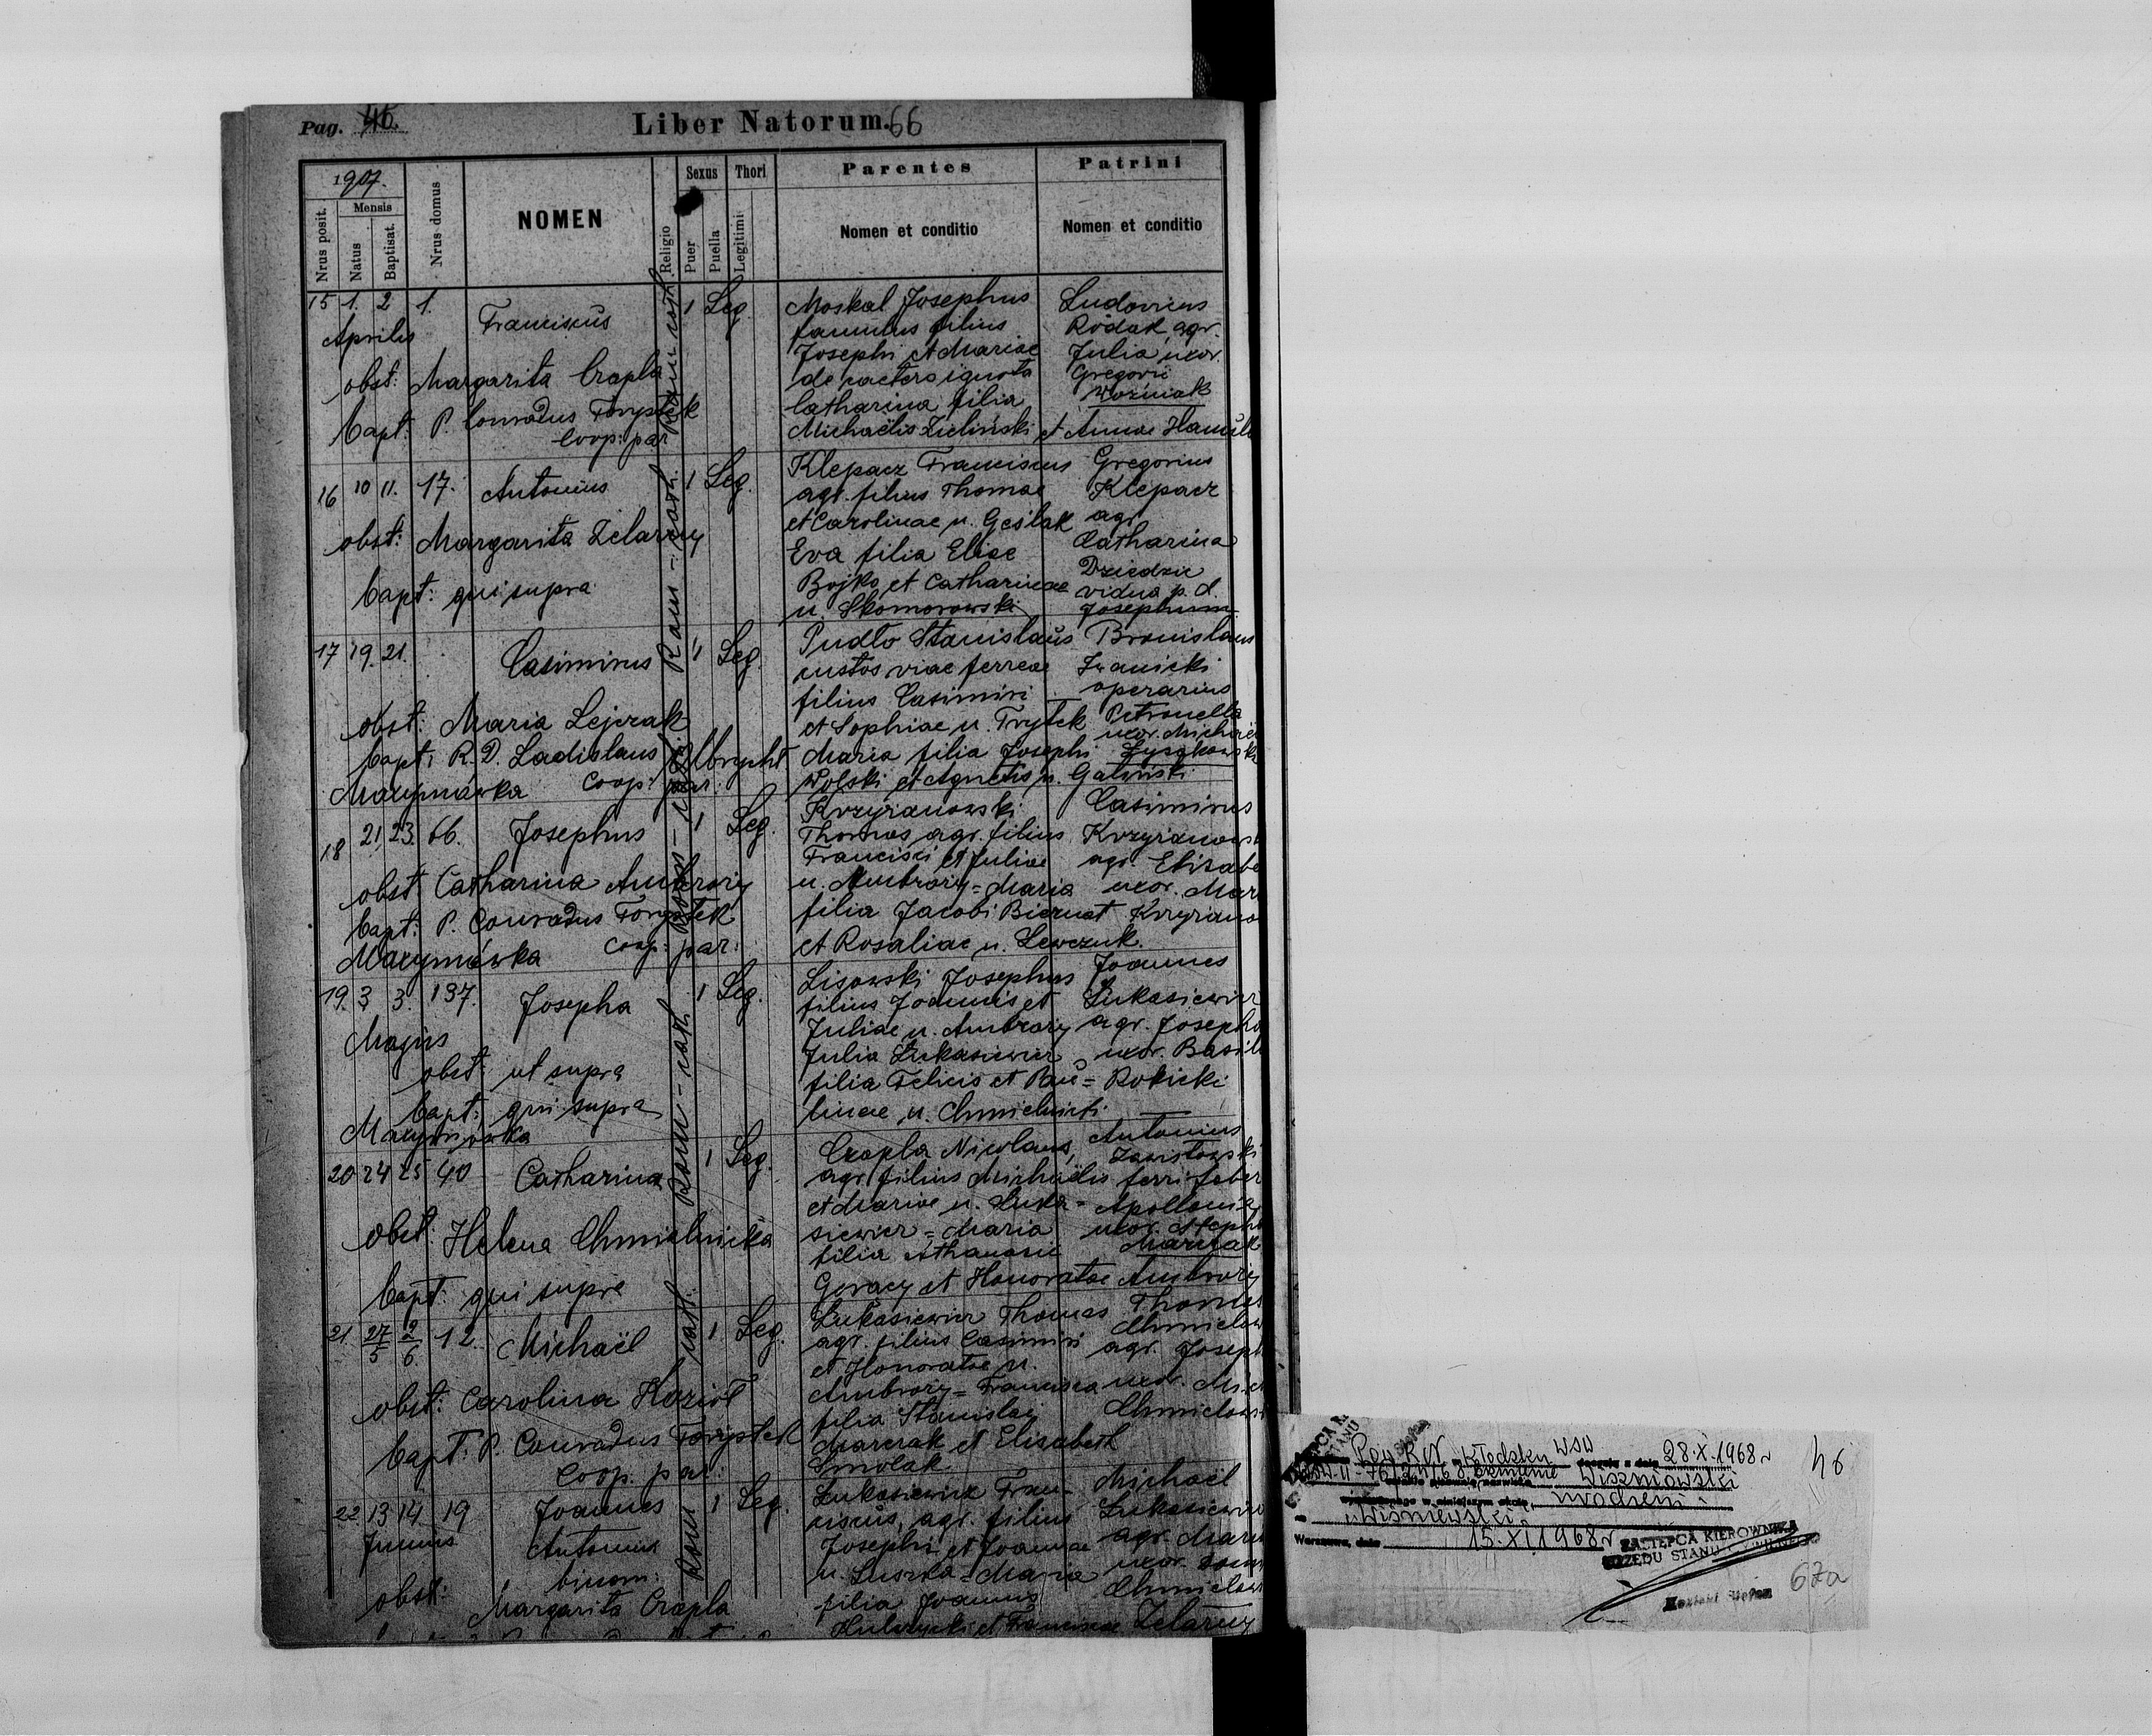 Pag. 46. Liber Natorum. 66
1907.
Nrus posit.
Mensis
Natus
Baptisat.
Nrus domus
NOMEN
Religio
Sexus
Puer
Puella
Thori
Legitimi
Parentes
Nomen et conditio
Patrini
Nomen et conditio
15 1. 2 1. Franciscus 1 Leg.
Aprilis
obst: Margarita Czapla
bapt: P. Conradus Torystek
coop: par
Rom cath.
Moskal Josephus
famulus filius
Josephi et Mariae
de caetero ignota
Catharina filia
Michaëlis Zieliński et Annae
Ludovicus
Rodak agr.
Julia uxor.
Gregorii
Woźniak
16 10 11. 17. Antonius 1 Leg.
obst: Margarita Zelazny
bapt: qui supra
Rom - cath.
Klepacz Franciscus
agr. filius Thomae
et Carolinae n. Geślak
Eva filia Eliae
Bojko et Catharinae
n. Skomorowski
Gregorius
Klepacz
agr.
Catharina
Dziedzic
vidua p. d.
Josephum
17 19. 21. Casimirus 1 Leg.
obst: Maria Lejczak
bapt: R. D. Ladislaus Olbrycht
Maxymówka coop: par:
Pudło Stanislaus
custos viae ferreae
filius Casimiri
et Sophiae n. Trytek
Maria filia Josephi
Wolski et Agnetis n.
Bronislaus
Iwanicki
operarius
Petronella
uxor. Michaë
18 21 23 66. Josephus 1 Leg.
obst Catharina Ambroży
bapt: P. Conradus Torystek
Maxymówka coop: par:
Rom - cath.
Krzyżanowski
Thomas agr. filius
Francisci et Juliae
n. Ambroży = Maria
filia Jacobi Biernat
et Rosaliae n. Lewczuk.
Casimirus
Krzyżanowsk
agr. Elizabe
uxor. Mar
Krzyżano
19. 3 3. 137. Josepha 1 Leg.
Majus
obst: ut supra
bapt: qui supra
Maxymówka
Rom - cath
Lisowski Josephus
filius Joannis et
Juliae n. Ambroży
Julia Łukasiewicz
filia Felicis et Pau=
linae n. Chmielnicki.
Joannes
Łukasiewicz
agr. Josepha
uxor. Basili
Rokicki
20 24 25 40 Catharina 1 Leg.
obst: Helena Chmielnicka
bapt: qui supra
Czapla Nicolaus,
agr. filius Michaëlis
et Mariae n. Łuka=
siewicz = Maria
filia Athanasii
Geracy et Honoratae Ambroży
Antonius
Zawistowski
ferri faber
Apollonia
uxor. Steph
Marczak
21. 27/5 2/6 12 Michaël 1 Leg.
obst: Carolina Kozioł
bapt: P. Conradus Torystek
Coop. par:
Rom cath.
Łukasiewicz Thomas
agr. filius Casimiri
et Honoratae n.
Ambroży = Francisca
filia Stanislai
Marczak et Elisabeth
Smolak.
Thomas
Chmielow
agr. Joseph
uxor. Mich
Chmielows
22. 13 14 19 Joannes 1 Leg.
Junius Antonius
binom:
obst: Margarita Czapla
Rom
Łukasiewicz Fran=
ciscus, agr. filius
Josephi et Joannae
n. Luszka = Maria
filia Joannis
et Franciscae Zelazny
Michaël
Łukasiewicz
agr. Maria
uxor.
Chmielow
Pow. R.N. w Kłodzku WSW decyzją z dnia 28.X.1968 r 46
Wiszniowski
urodzeni
na "Wiśniewski"
Warszawa, dnia 15.XI.1968 r
ZASTĘPCA KIEROWNIKA
URZĘDU STANU CYWILNEGO
67a